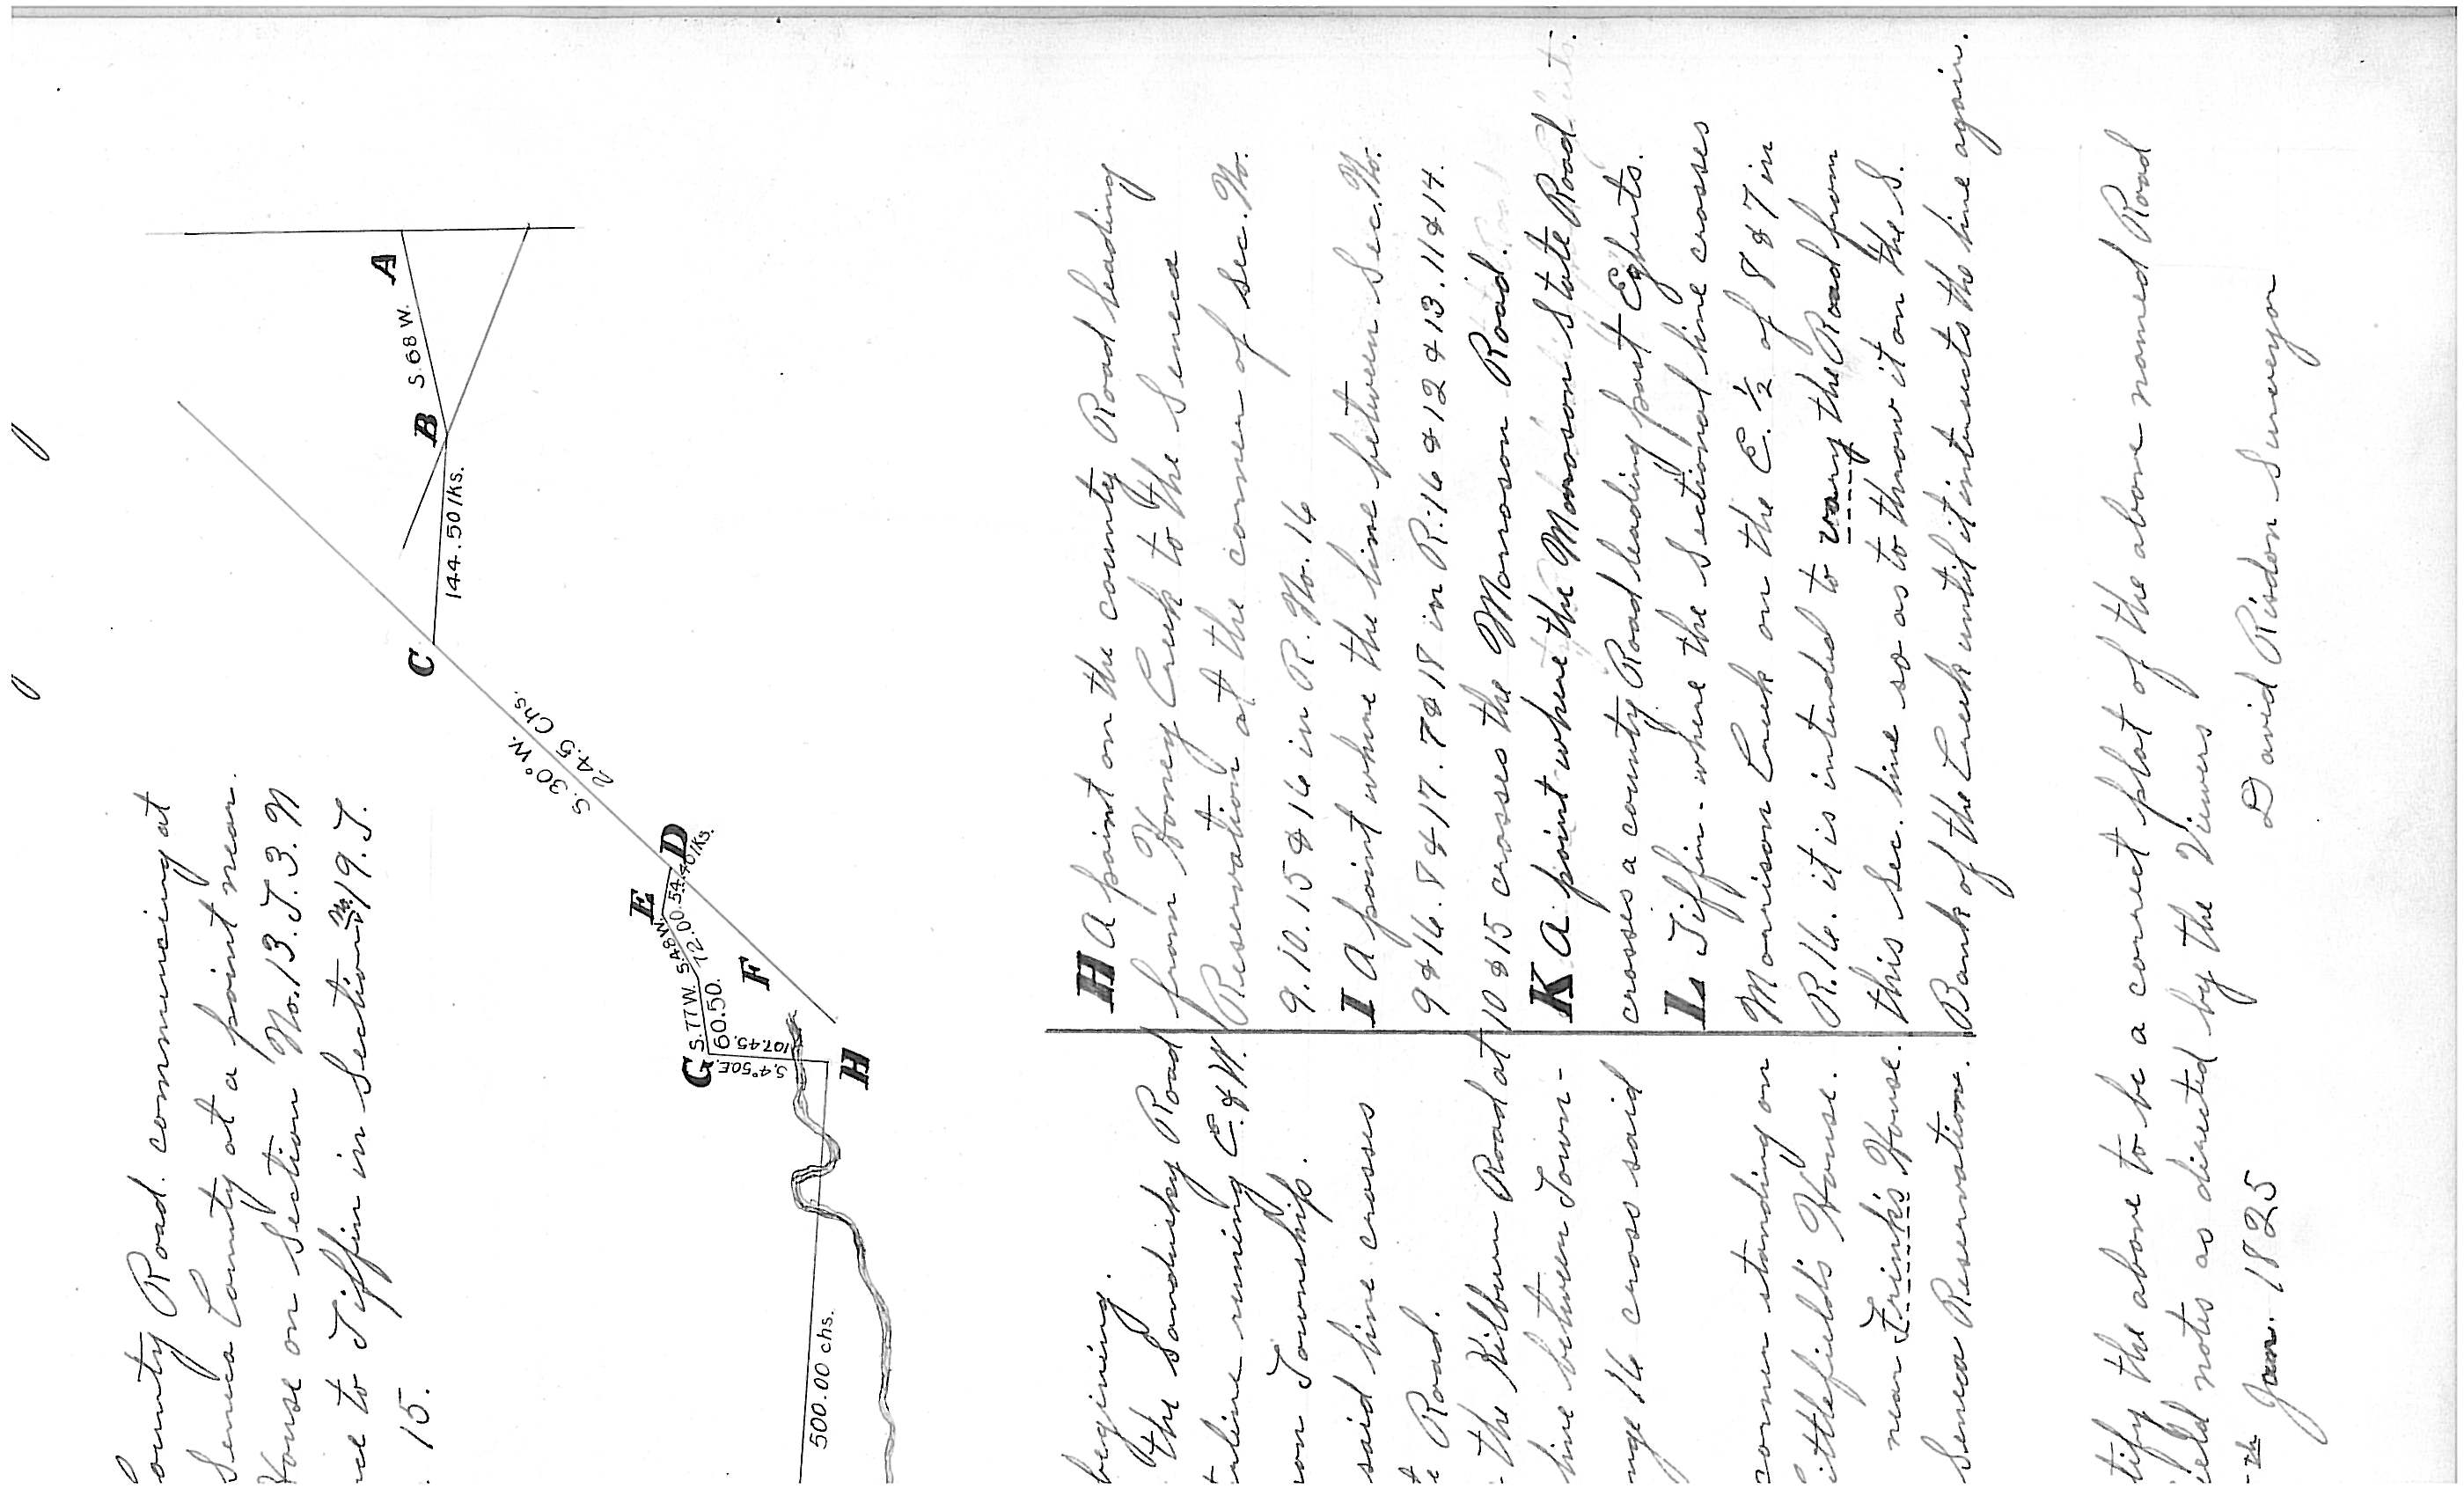 ounty Road. commencing at
Seneca County at a point near
House on Section No.13.T.3.N
ce to Tiffin in Section No. 19.T.
. 15.
A
S.68 W.
B
144.50 lKs.
C
S. 30° W.
24.5 Chs.
D
54.40 lKs.
E
S.48W.
12.00
F
S.77W.
60.50.
G
S.4°50E.
107.45.
H
500.00 chs.
begining.
the Sandusky Road
line runing E. & W.
on Township.
said line crosses
te Road.
the Kilburn Road at
line between Town-
nge 16 cross said
corner standing on
ittlefield's House.
near Frink's House.
Seneca Reservation.
H A point on the county Road leading
from Honey Creek to the Seneca
Reservation at the corner of Sec. No.
9.10.15 & 16 in R. No. 16
I A point where the line between Sec. No.
9 & 16. 8 & 17. 7 & 18 in R. 16 & 12 & 13. 11 & 14.
10 & 15 crosses the Monroson Road.
K A point where the Monroson State Road
crosses a county Road leading past Egberts.
L Tiffin - where the Sectional line crosses
Morrison Creek on the E. ½ of 8 & 7 in
R.16. it is intended to vary the Road from
this Sec. line so as to throw it on the S.
Bank of the Creek until it intersects the line again.
tify the above to be a correct plat of the above named Road
ield notes as directed by the Viewers
th Jan. 1825
David Risdon Surveyor